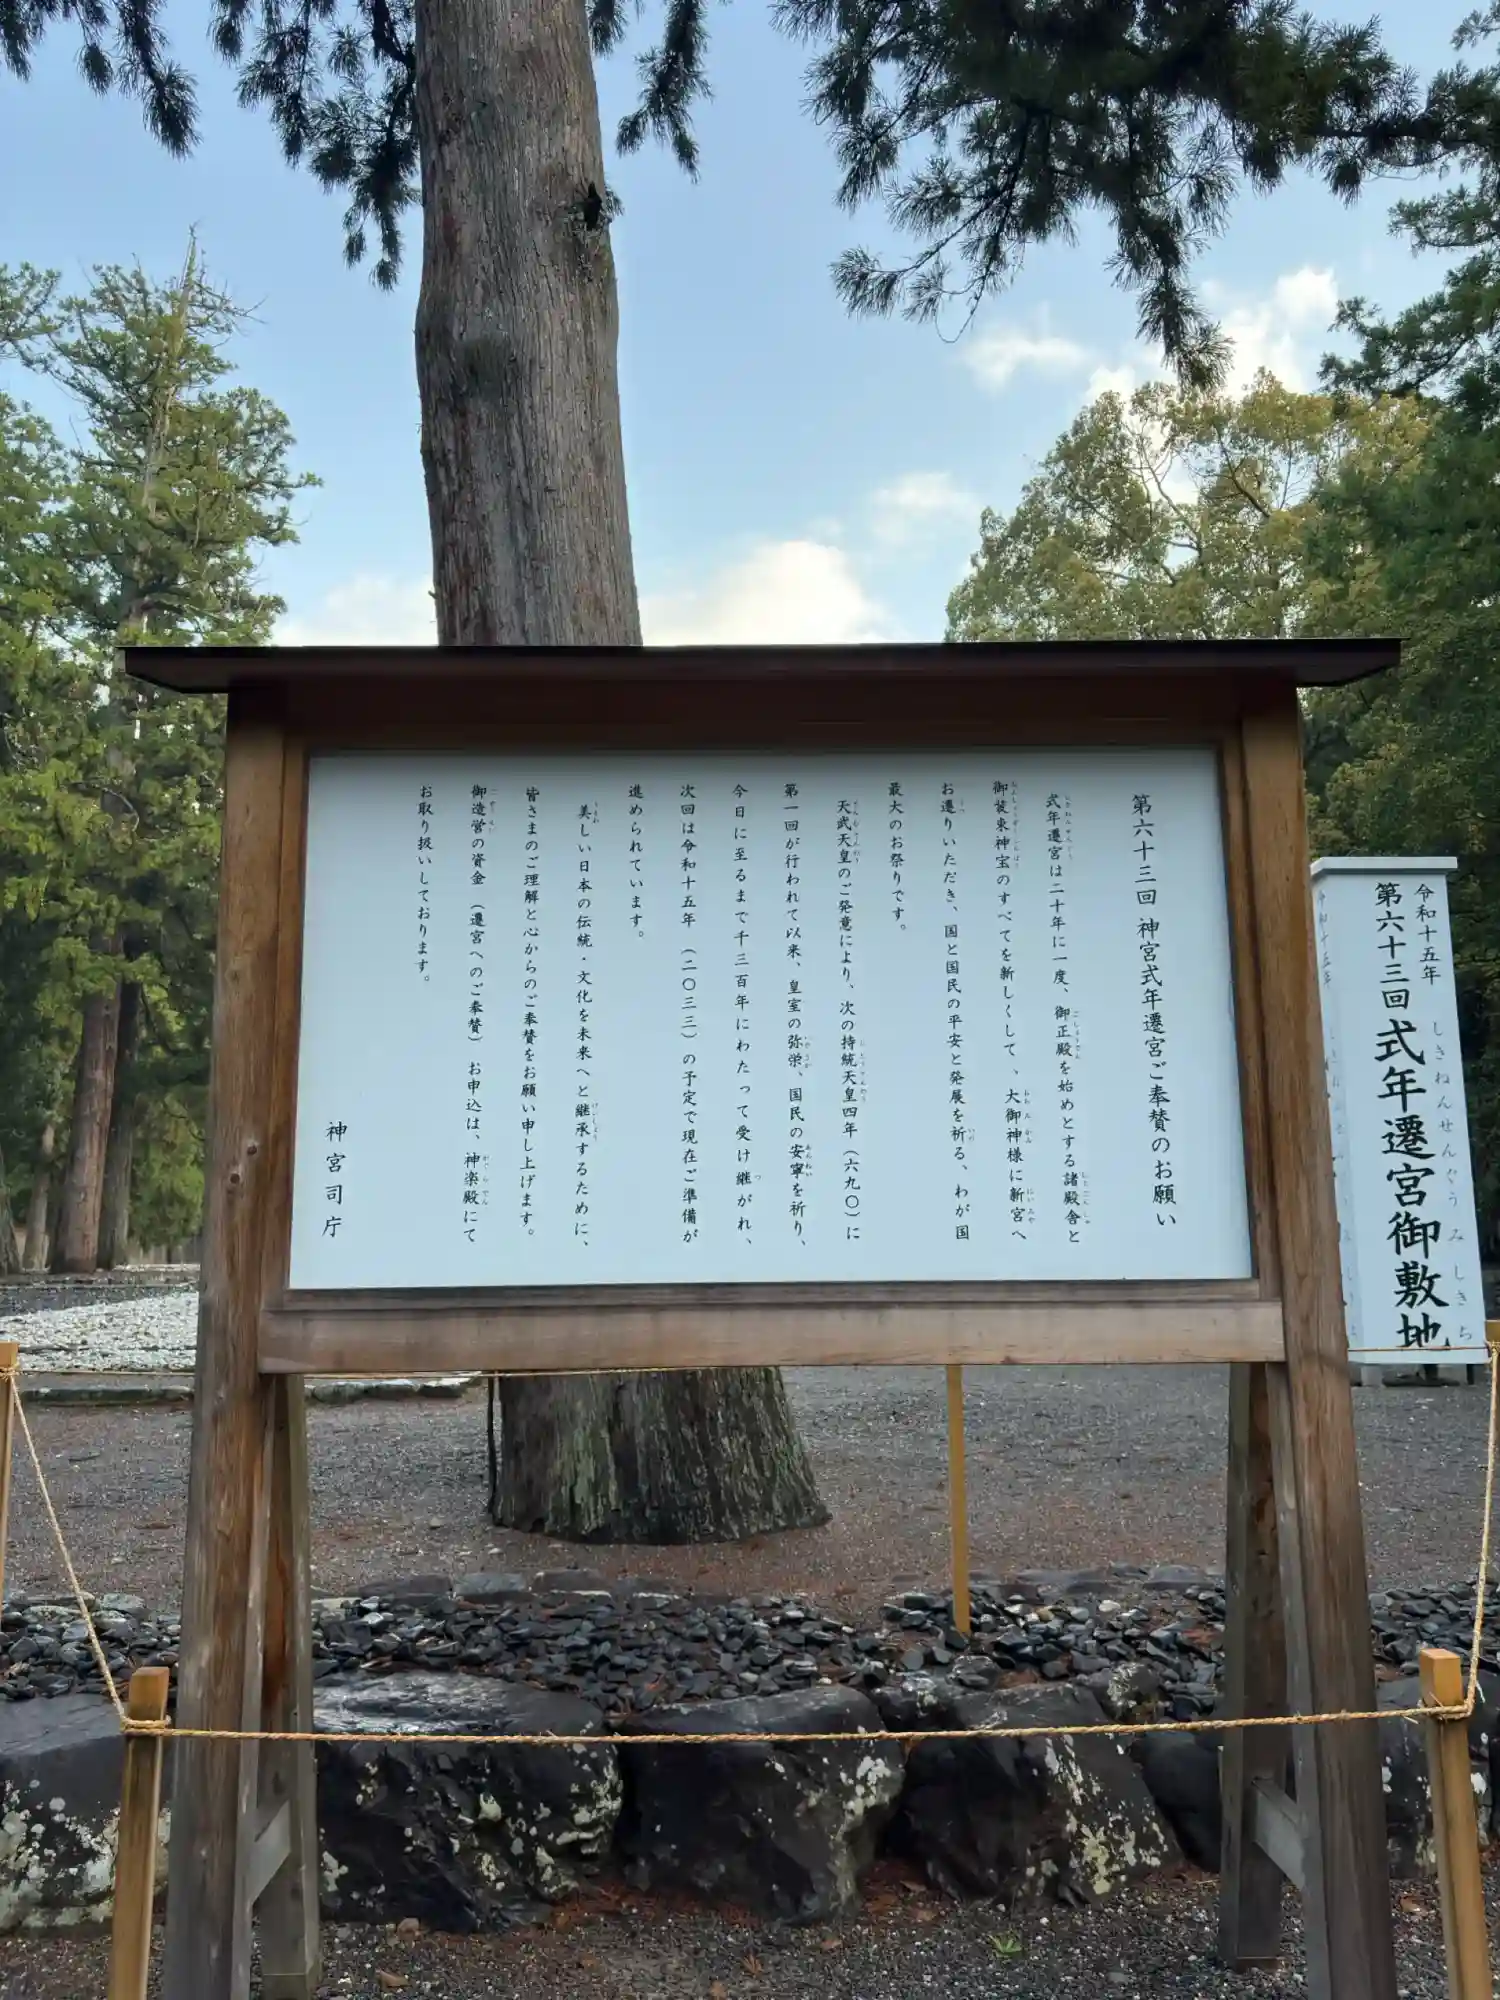 第六十三回 神宮式年遷宮ご奉賛のお願い
式年遷宮は二十年に一度、御正殿を始めとする諸殿舎と
御装束神宝のすべてを新しくして、大御神様に新宮へ
お遷りいただき、国と国民の平安と発展を祈る、わが国
最大のお祭りです。
天武天皇のご発意により、次の持統天皇四年（六九〇）に
第一回が行われて以来、皇室の弥栄、国民の安寧を祈り、
今日に至るまで千三百年にわたって受け継がれ、
次回は令和十五年（二〇三三）の予定で現在ご準備が
進められています。
美しい日本の伝統・文化を未来へと継承するために、
皆さまのご理解と心からのご奉賛をお願い申し上げます。
御造営の資金（遷宮へのご奉賛）お申込は、神楽殿にて
お取り扱いしております。
神宮司庁
令和十五年
第六十三回 式年遷宮御敷地
しきねんせんぐうみしきち
令和十五年